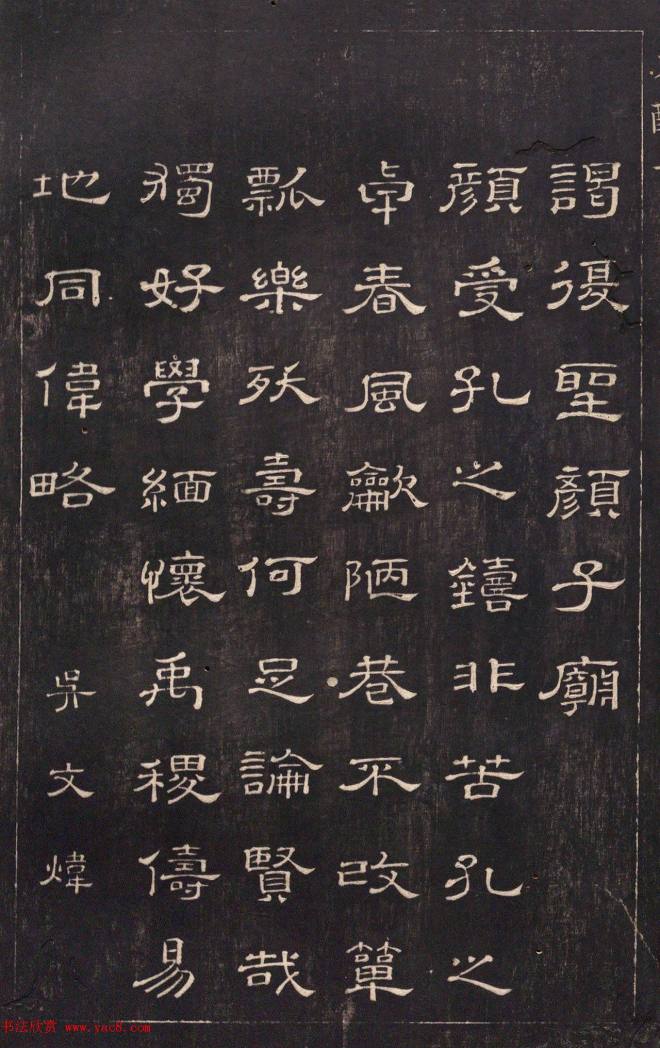 謁復聖顏子廟
顏受孔之鑄非苦孔之
卓春風龡陋巷不改簞
瓢樂殀壽何足論賢哉
獨好學緬懷禹稷儔易
地同偉略 吳文煒
书法欣赏 www.yac8.com